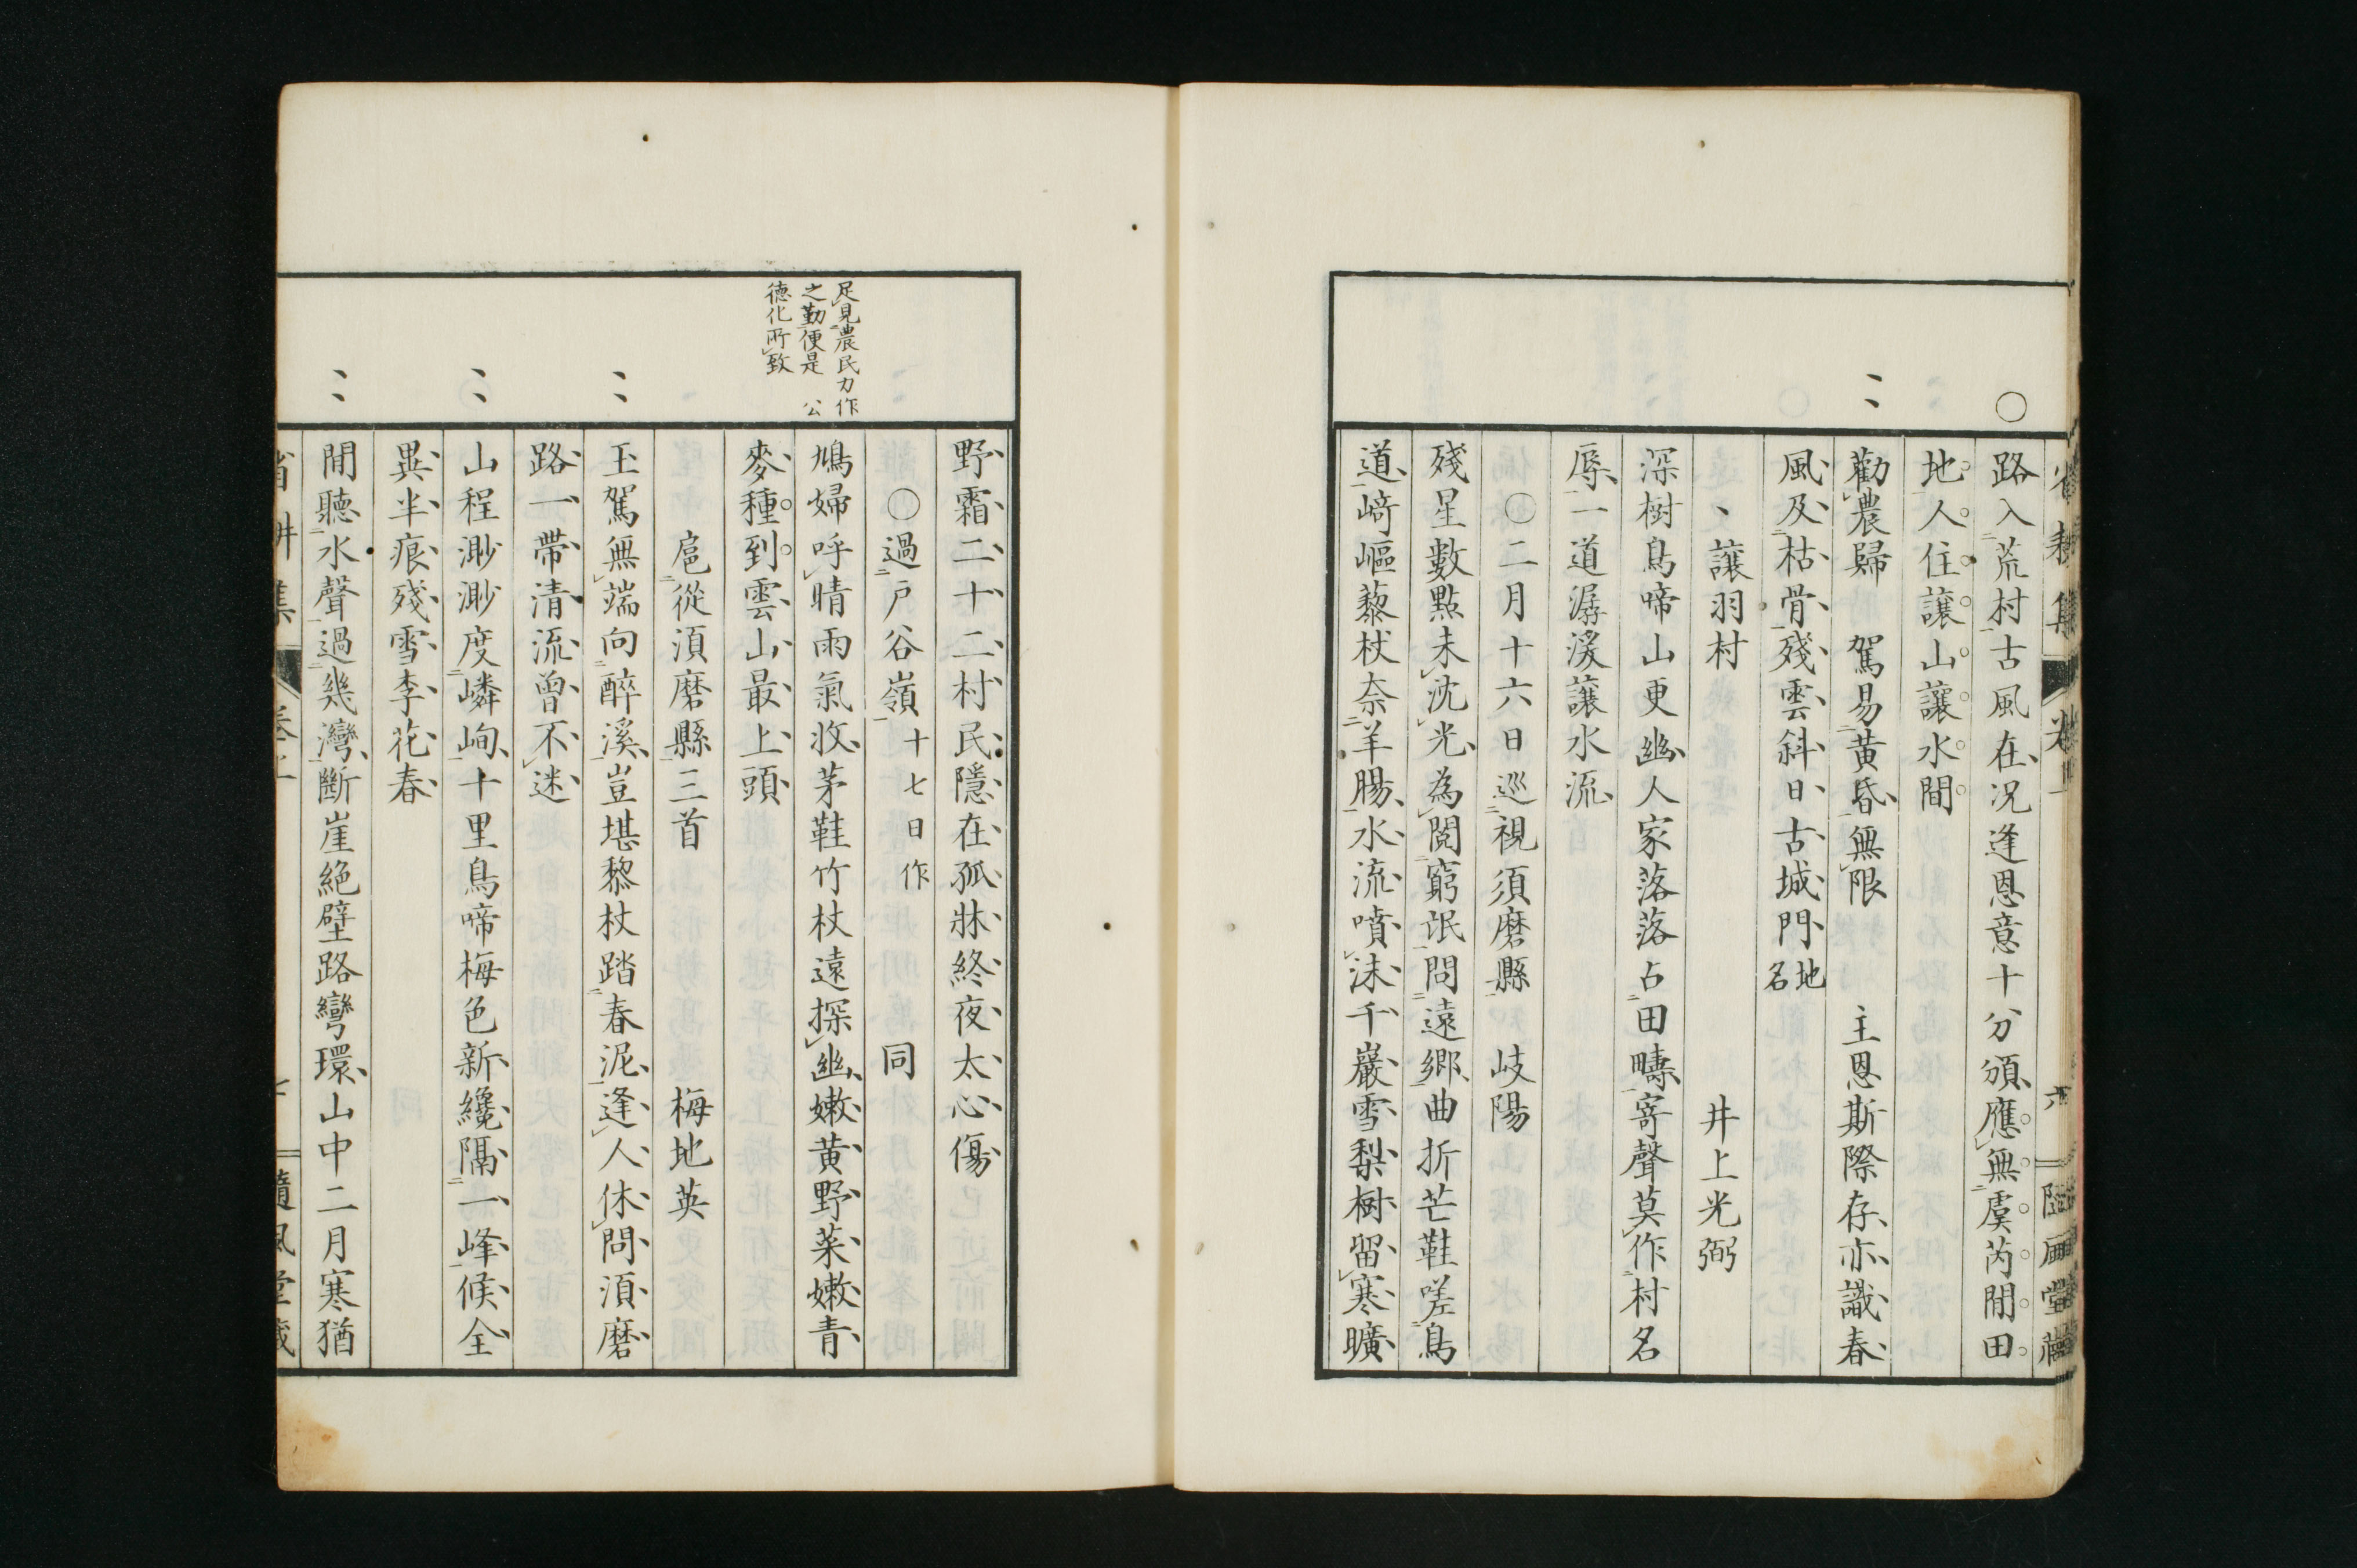 路入荒村古風在况逢恩意十分頒應無虞芮閒田
地人住讓山讓水間
勸農歸　駕易黃昏無限　主恩斯際存亦識春
風及枯骨殘雲斜日古城門地名
讓羽村　井上光弼
深樹鳥啼山更幽人家落落占田疇寄聲莫作村名
辱一道潺湲讓水流
〇二月十六日巡視須磨縣　岐陽
殘星數點未沈光為閱窮氓問遠鄉曲折芒鞋嗟鳥
道﨑嶇藜杖奈羊腸水流噴沫千巖雪梨樹留寒曠
足見農民力作
之勤便是　公
德化所致
野霜二十二村民隱在孤牀終夜太心傷
〇過戶谷嶺十七日作　同
鳩婦呼晴雨氣收茅鞋竹杖遠探幽嫩黃野菜嫩青
麥種到雲山最上頭
扈從須磨縣三首　梅地英
玉駕無端向醉溪豈堪黎杖踏春泥逢人休問須磨
路一帶清流曾不迷
山程渺渺度嶙峋十里鳥啼梅色新纔隔一峰候全
異半痕殘雪李花春
閒聽水聲過幾灣斷崖絕壁路彎環山中二月寒猶